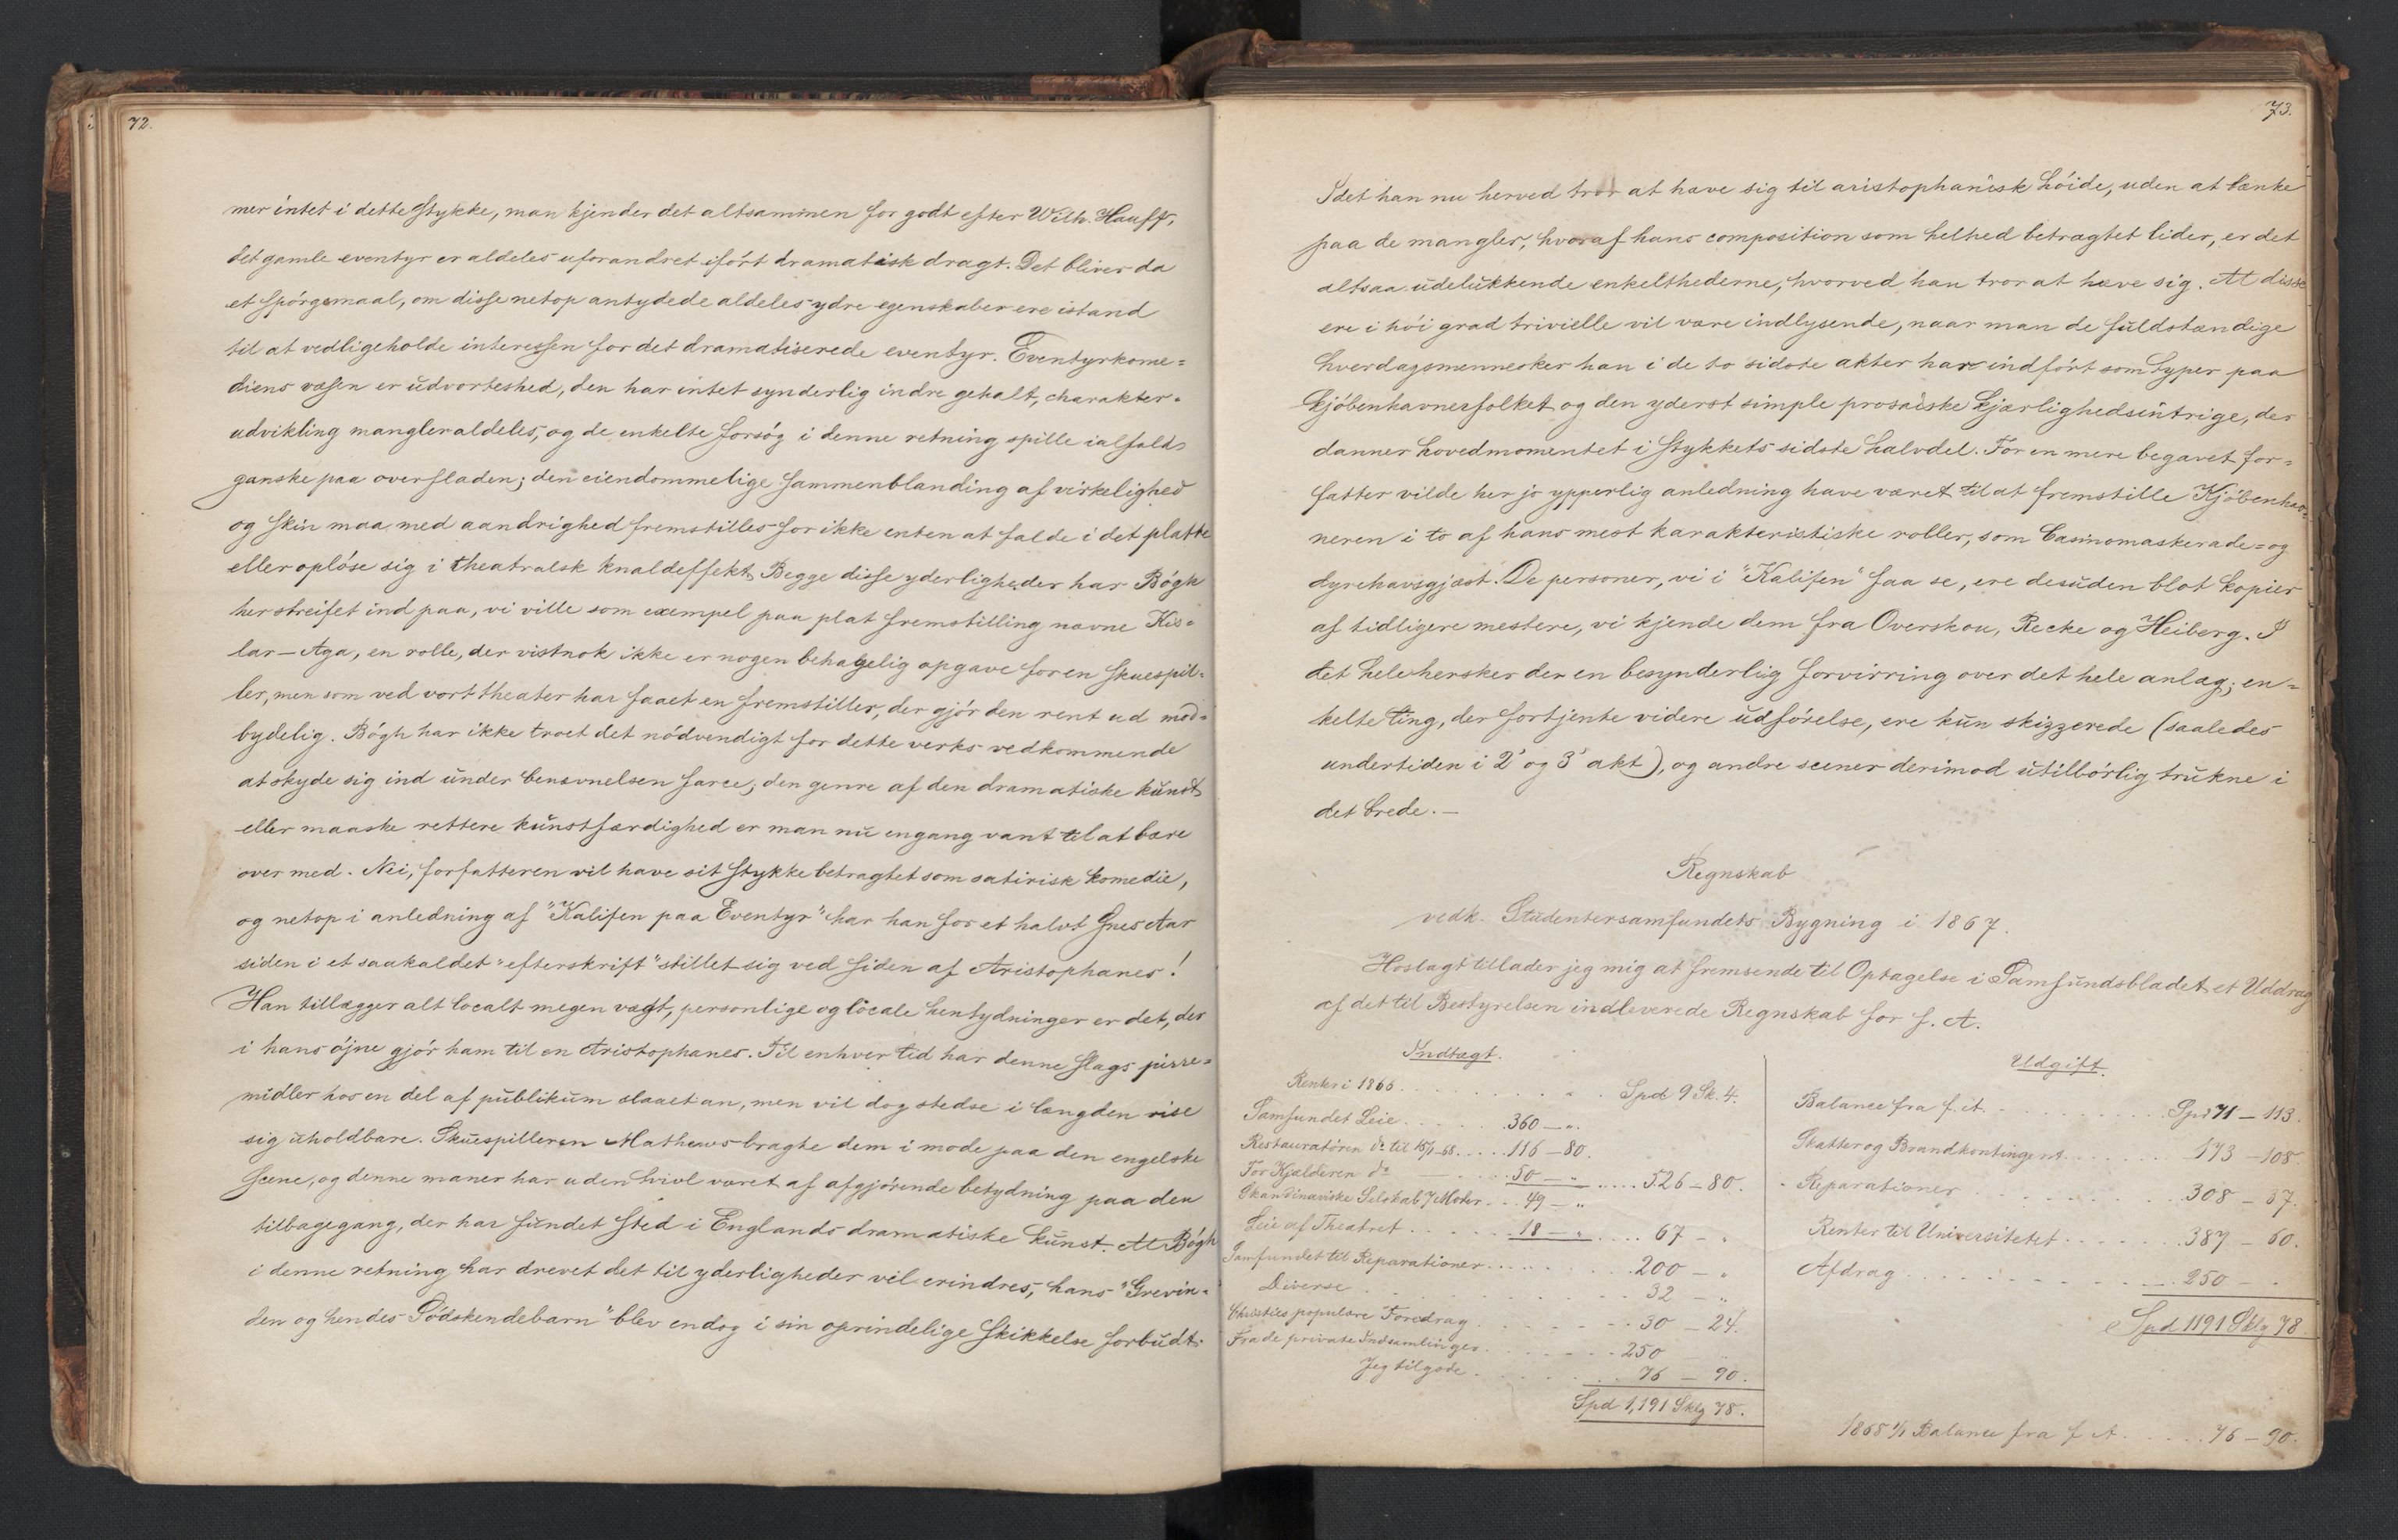 72.
mer intet i dette stykke, man kjender det altsammen for godt efter Wilh. Hauff,
det gamle eventyr er aldeles uforandret iført dramatisk dragt. Det bliver da
et spørgsmaal, om disse netop antydede aldeles ydre egenskaber ere istand
til at vedligeholde interessen for det dramatiserede eventyr. Eventyrkome=
diens væsen er udvorteshed, den har intet synderlig indre gehalt, charakter=
udvikling mangler aldeles, og de enkelte forsøg i denne retning spille ialfald
ganske paa overfladen; den eiendommelige sammenblanding af virkelighed
og skin maa med aandrighed fremstilles for ikke enten at falde i det platte
eller opløse sig i theatralsk knaldeffekt. Begge disse yderligheder har Bøgh
her streifet ind paa, vi ville som exempel paa plat fremstilling nævne Kis=
lar-Aga, en rolle, der vistnok ikke er nogen behagelig opgave for en skuespil=
ler, men som ved vort theater har faaet en fremstiller, der gjør den rent ud mod=
bydelig. Bøgh har ikke troet det nødvendigt for dette verks vedkommende
at skyde sig ind under benævnelsen farce, den genre af den dramatiske kunst
eller maaske rettere kunstfærdighed er man nu engang vant til at bære
over med. Nei, forfatteren vil have sit stykke betragtet som satirisk komedie,
og netop i anledning af "Kalifen paa Eventyr" har han for et halvt Snes Aar
siden i et saakaldet "efterskrift" stillet sig ved siden af Aristophanes!
Han tillægger alt localt megen vægt, personlige og locale hentydninger er det, der
i hans øjne gjør ham til en Aristophanes. Til enhver tid har denne slags pirre=
midler hos en del af publikum slaaet an, men vil dog stedse i længden vise
sig uholdbare. Skuespilleren Mathews bragte dem i mode paa den engelske
scene, og denne maner har uden tvivl været af afgjørende betydning paa den
tilbagegang, der har fundet sted i Englands dramatiske kunst. At Bøgh
i denne retning har drevet det til yderligheder vil erindres, hans "Grevin=
den og hendes Sødskendebarn" blev endog i sin oprindelige skikkelse forbudt.
73.
Idet han nu herved tror at hæve sig til aristophanisk høide, uden at tænke
paa de mangler, hvoraf hans composition som helhed betragtet lider, er det
altsaa udelukkende enkelthederne, hvorved han tror at hæve sig. At disse
ere i høi grad trivielle vil være indlysende, naar man de fuldstændige
hverdagsmennesker han i de to sidste akter har indført som typer paa
kjøbenhavnerfolket og den yderst simple prosaiske kjærlighedsintrige, der
danner hovedmomentet i stykkets sidste halvdel. For en mere begavet for=
fatter vilde her jo ypperlig anledning have været til at fremstille Kjøbenhav=
neren i to af hans mest karakteristiske roller, som Casinomaskerade= og
dyrehavsgjæst. De personer, vi i "Kalifen" faa se, ere desuden blot kopier
af tidligere mestere, vi kjende dem fra Overskou, Recke og Heiberg. I
det hele hersker der en besynderlig forvirring over det hele anlæg; en=
kelte ting, der fortjente videre udførelse, ere kun skizzerede (saaledes
undertiden i 2' og 3' akt), og andre scener derimod utilbørlig trukne i
det brede. —
Regnskab
vedk. Studentersamfundets Bygning i 1867.
Hoslagt tillader jeg mig at fremsende til Optagelse i Samfundsbladet et Uddrag
af det til Bestyrelsen indleverede Regnskab for f. A.
Indtægt.
Renter i 1866 . . . . . Spd 9 Sk. 4.
Samfundet Leie . . . . . 360 — ".
Restauratøren do til 15/1-68 . . . . 116 — 80.
For Kjælderen do . . . 50 — " . . . . . 526 — 80.
Skandinaviske Selskab 7 Møder . . . 49 — "
Leie af Theatret . . . . . 18 — " . . . . 67 — "
Samfundet til Reparationer . . . . . . 200 — "
Diverse . . . . . 32 — "
Christies populære Foredrag . . . . . 30 — 24.
Fra de private Indsamlinger . . . . . 250 — "
Jeg tilgode . . . . . 76 — 90.
Spd 1,191 Sklg 78.
Udgift.
Balance fra f. A. . . . . . Spd 71 — 113.
Skatter og Brandkontingent . . . . . 173 — 108.
Reparationer . . . . . 308 — 37.
Renter til Universitetet . . . . . 387 — 60.
Afdrag . . . . . 250 — .
Spd 1191 Sklg 78
1868 1/1 Balance fra f. A. . . . . . 76 — 90.